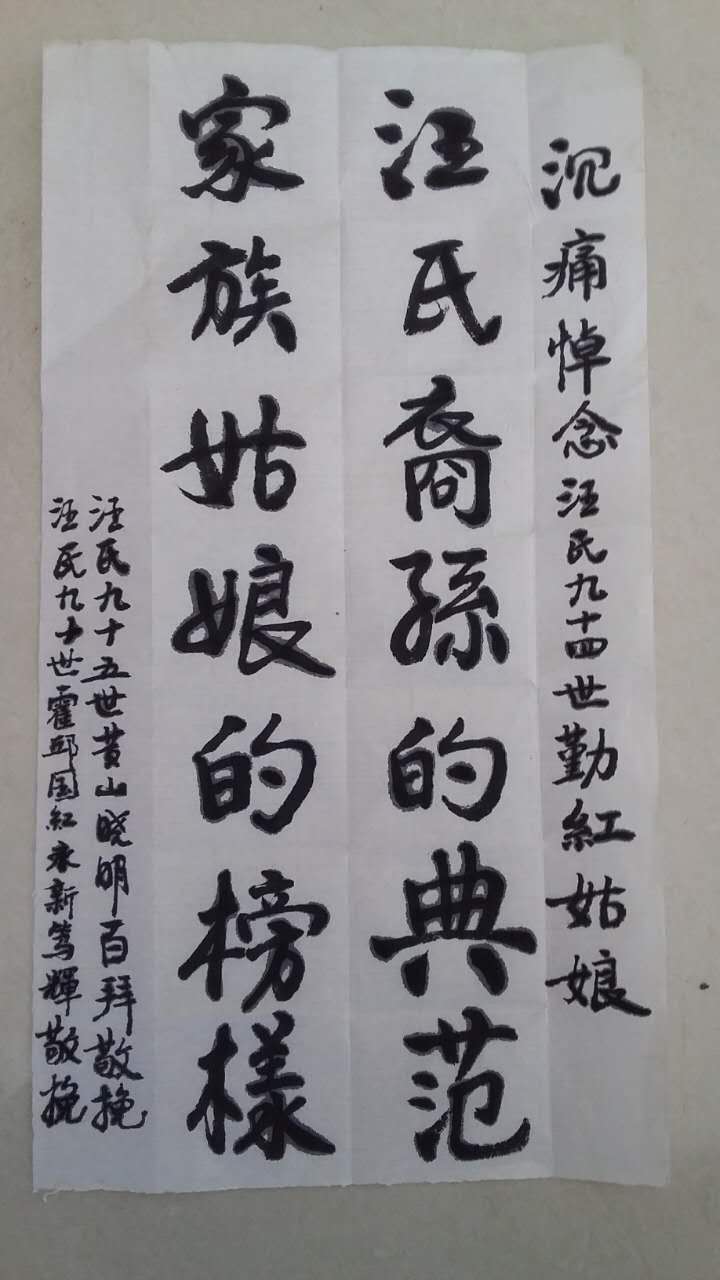 沉痛悼念汪氏九十四世勤紅姑娘
汪氏裔孫的典范
家族姑娘的榜樣
汪氏九十五世黄山晓明百拜敬挽
汪氏九十世霍邱国紅永新笃輝敬挽